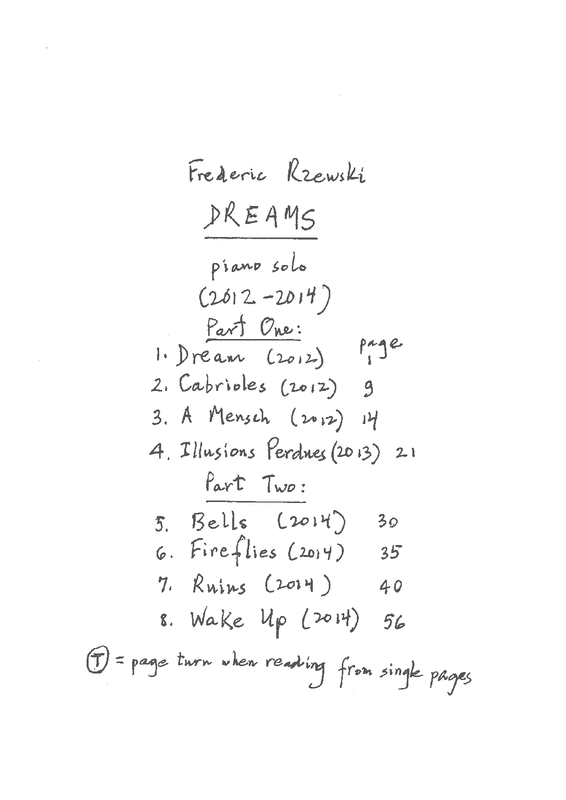 Frederic Rzewski
DREAMS
piano solo
(2012-2014)
Part One:
page
1. Dream (2012) 1
2. Cabrioles (2012) 9
3. A Mensch (2012) 14
4. Illusions Perdues (2013) 21
Part Two:
5. Bells (2014) 30
6. Fireflies (2014) 35
7. Ruins (2014) 40
8. Wake Up (2014) 56
T = page turn when reading from single pages